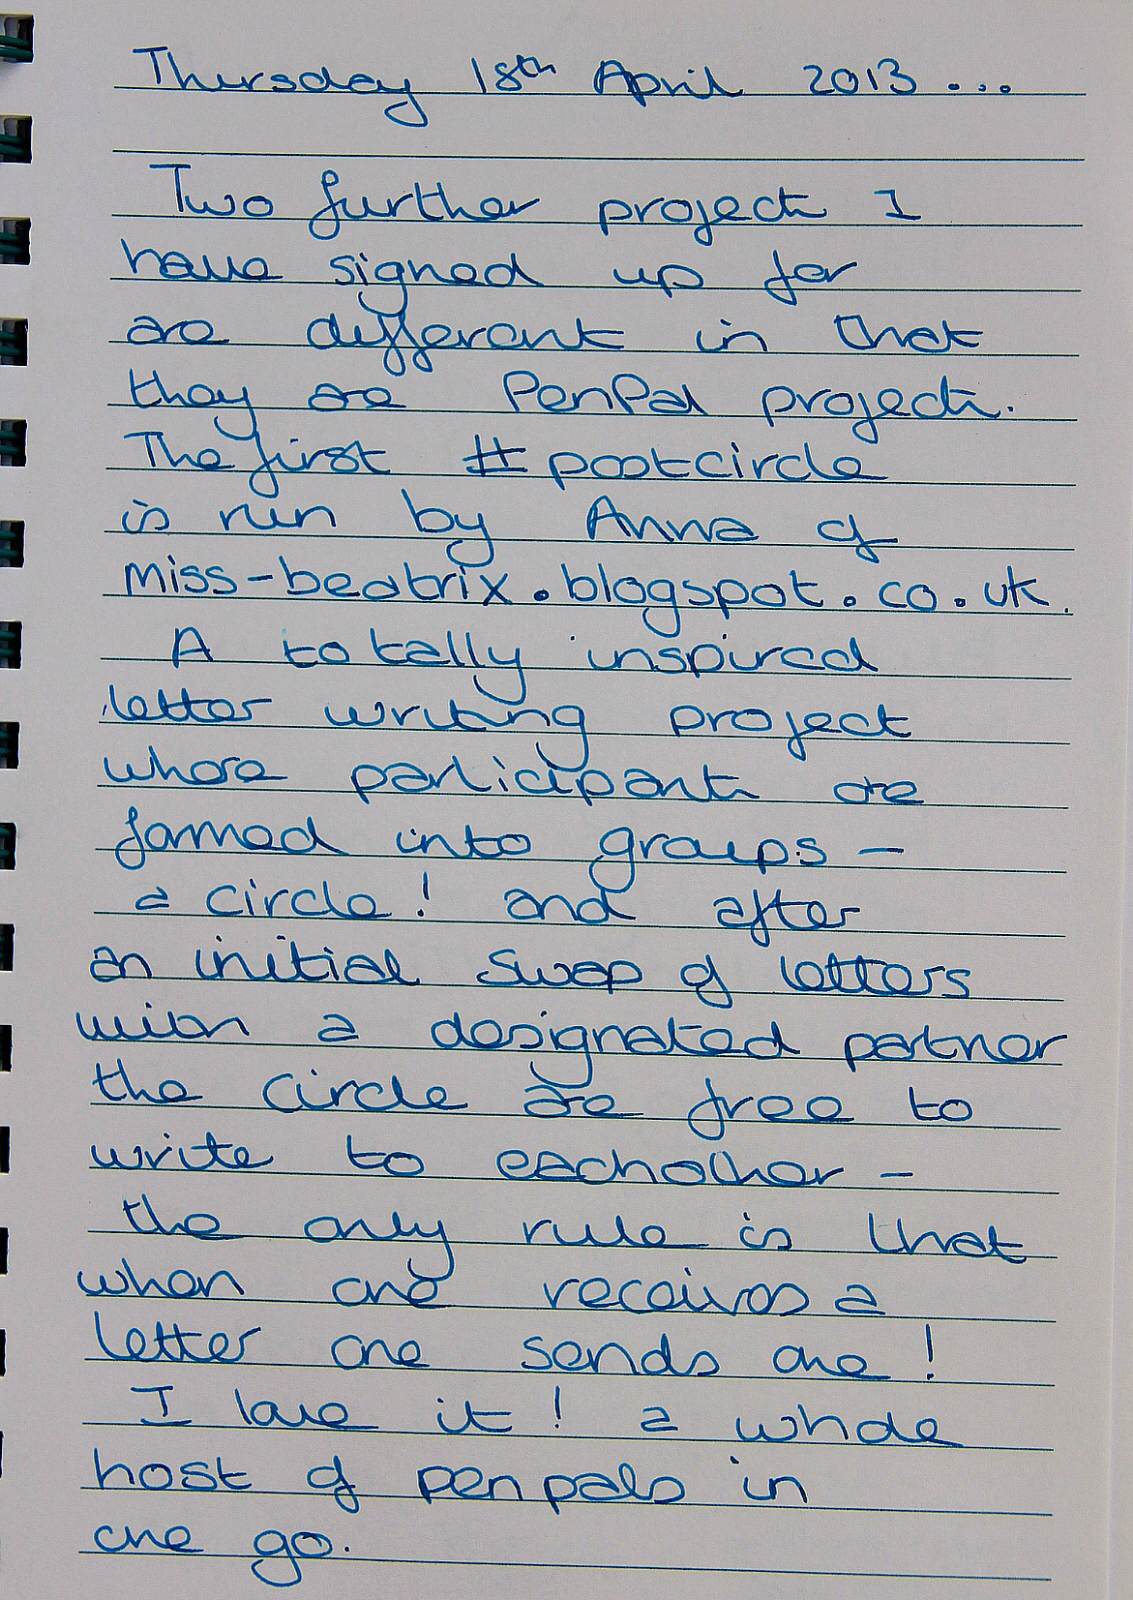 Thursday 18th April 2013 ...
Two further projects I
have signed up for
are different in that
they are PenPal projects.
The first #postcircle
is run by Anna of
miss-beatrix.blogspot.co.uk.
A totally inspired
letter writing project
whose participants are
formed into groups -
a circle! and after
an initial swap of letters
with a designated partner
the circle are free to
write to eachother -
the only rule is that
when one receives a
letter one sends one!
I love it! a whole
host of pen pals in
one go.